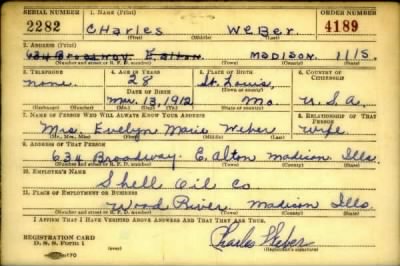 SERIAL NUMBER 1. NAME (Print) ORDER NUMBER
2282 CHarles WeBer 4189
(First) (Middle) (Last)
2. ADDRESS (Print)
634 Broadway E. Alton MADISON Ills.
(Number and street or R. F. D. number) (Town) (County) (State)
3. TELEPHONE 4. AGE IN YEARS 5. PLACE OF BIRTH 6. COUNTRY OF CITIZENSHIP
none. 28 St. Louis,
DATE OF BIRTH (Town or county)
Mar. 13, 1912 Mo. U.S.A.
(Mo.) (Day) (Yr.) (State or country)
7. NAME OF PERSON WHO WILL ALWAYS KNOW YOUR ADDRESS 8. RELATIONSHIP OF THAT PERSON
Mrs. Evelyn Marie Weber wife
(Mr., Mrs., Miss) (First) (Middle) (Last)
9. ADDRESS OF THAT PERSON
634 Broadway. E. Alton Madison Ills.
(Number and street or R. F. D. number) (Town) (County) (State)
10. EMPLOYER'S NAME
Shell Oil Co
11. PLACE OF EMPLOYMENT OR BUSINESS
Wood River Madison Ills.
(Number and street or R. F. D. number) (Town) (County) (State)
I AFFIRM THAT I HAVE VERIFIED ABOVE ANSWERS AND THAT THEY ARE TRUE.
REGISTRATION CARD
D. S. S. Form 1 Charles Weber
(Registrant's signature)